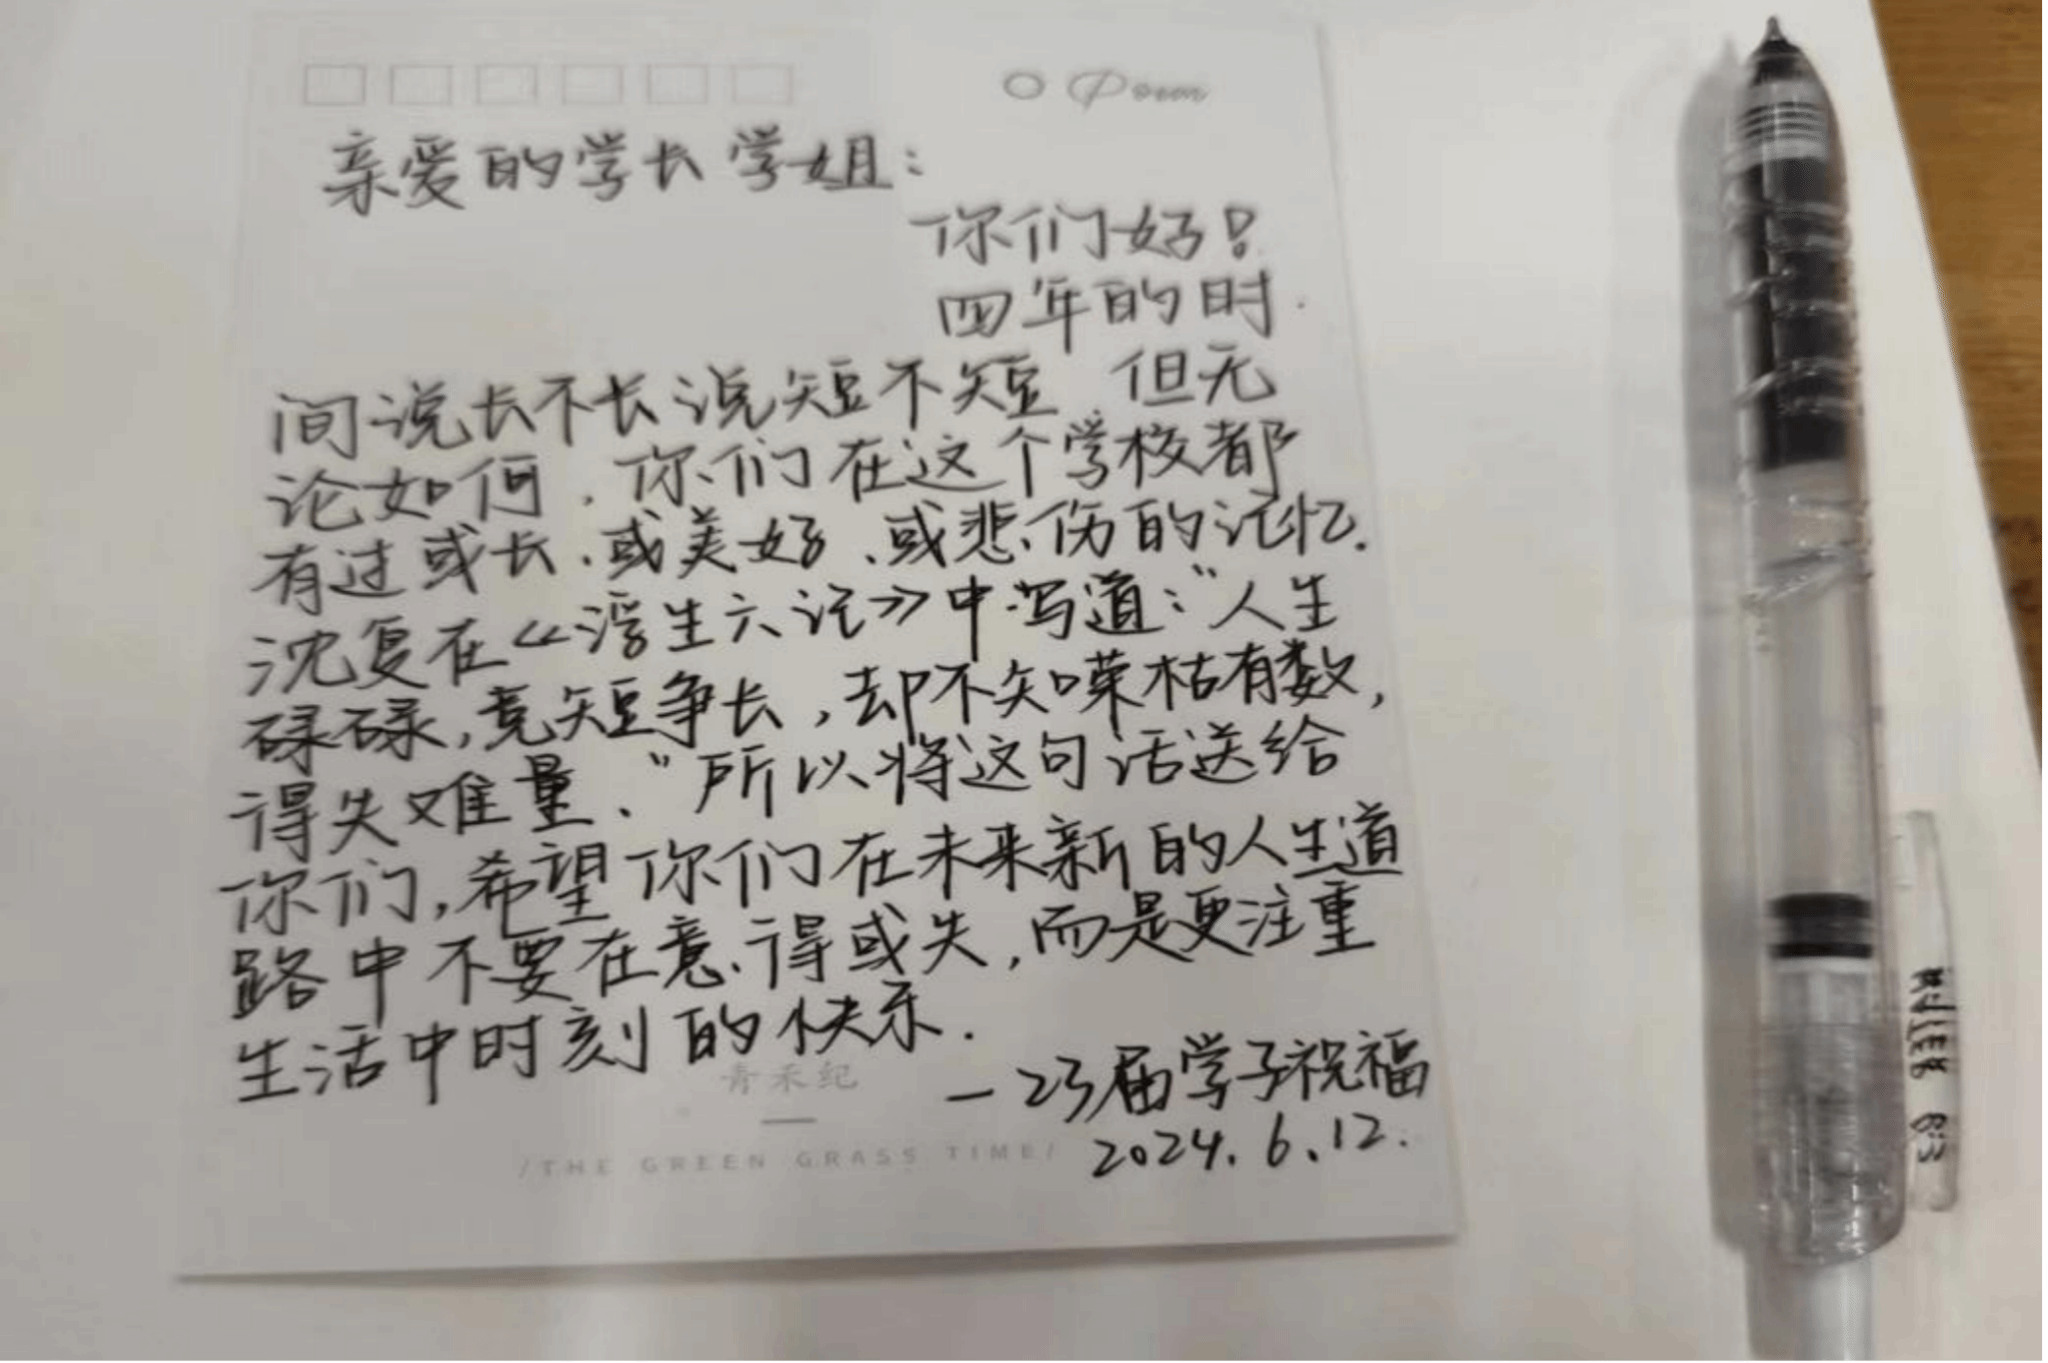 Poem
亲爱的学长学姐：
你们好！
四年的时
间说长不长说短不短 但无
论如何，你们在这个学校都
有过或长、或美好、或悲伤的记忆.
沈复在《浮生六记》中写道：“人生
碌碌，竞短争长，却不知荣枯有数，
得失难量、”所以将这句话送给
你们，希望你们在未来新的人生道
路中不要在意得或失，而是更注重
生活中时刻的快乐.
青禾纪
—23届学子祝福
/THE GREEN GRASS TIME/
2024.6.12.